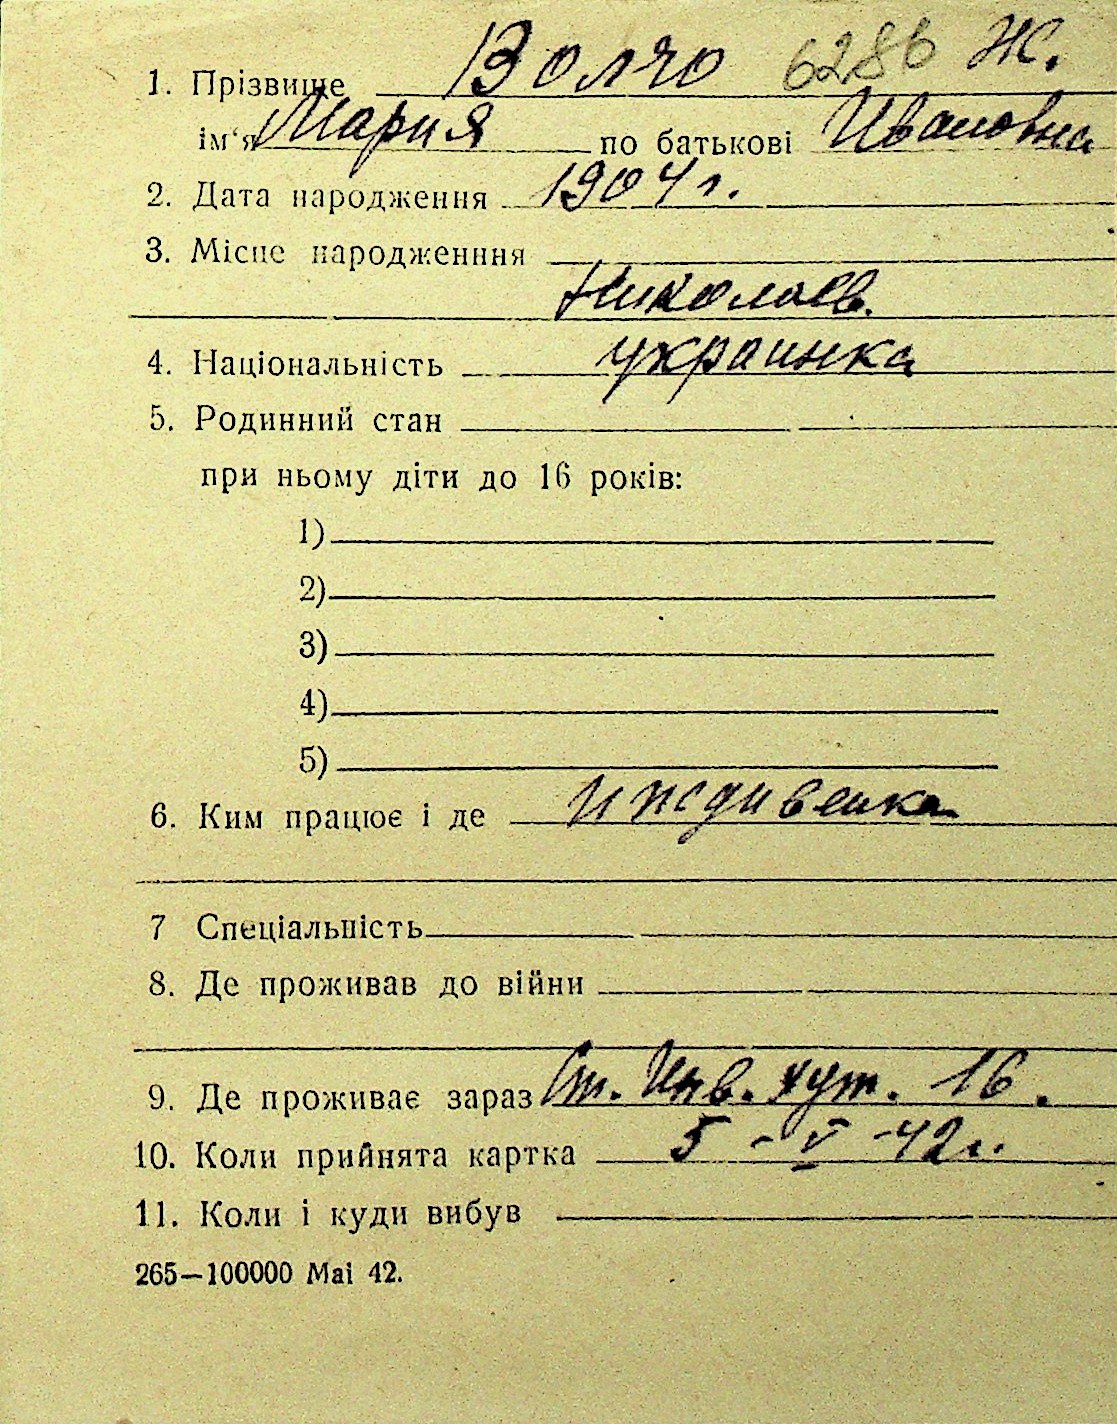 1. Прізвище Волчо 6286 Ж.
ім‘я Мария по батькові Ивановна
2. Дата народження 1904 г.
3. Місце народженння
Николаев.
4. Національність украинка
5. Родинний стан
при ньому діти до 16 років:
1)
2)
3)
4)
5)
6. Ким працює і де иждивенка
7 Спеціальність
8. Де проживав до війни
9. Де проживає зараз Ст. Инв. хут. 16.
10. Коли прийнята картка 5-V-42г.
11. Коли і куди вибув
265—100000 Mai 42.